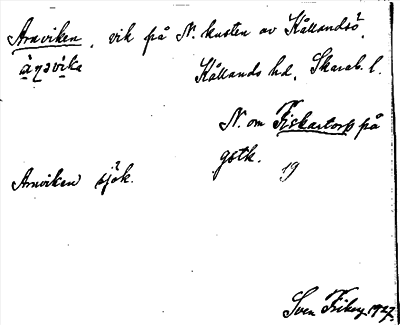 Arnviken, vik på N. kusten av Kållandsö,
Kållands hd, Skarab. l.
N. om Fiskartorp på
gstk.
19
Arnviken sjök.
Sven Ekbo, 1927.